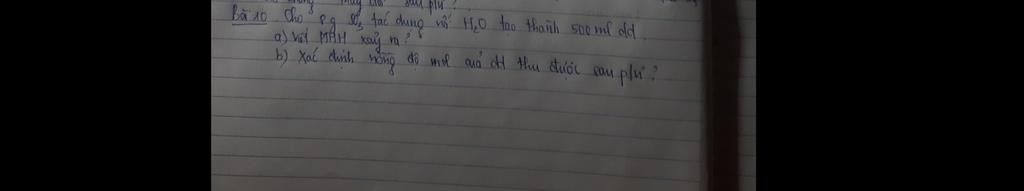 sau pư?
Bài 10 Cho 8g SO3 tác dụng với H2O tạo thành 500ml dd.
a) Viết PTHH xảy ra?
b) Xác định nồng độ mol của dd thu được sau pư?